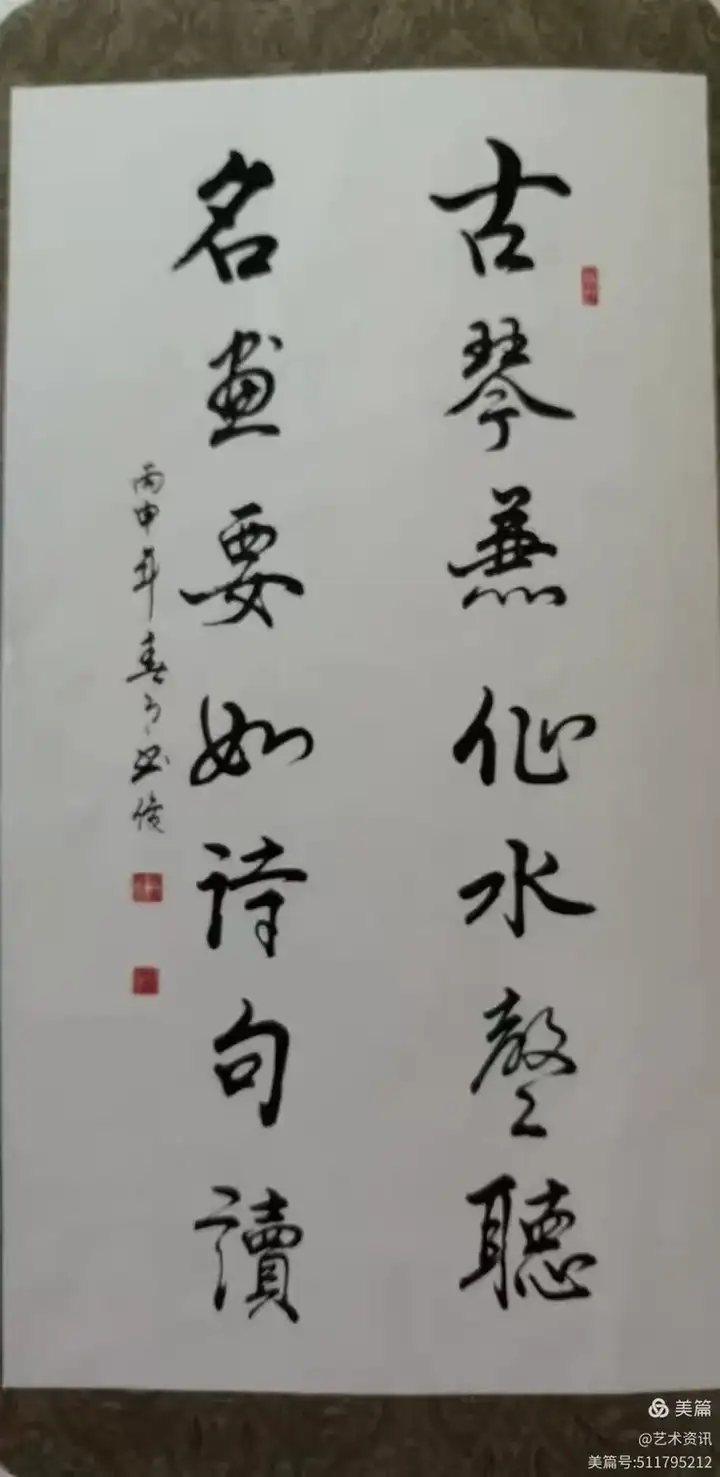 古琴兼作水聲聽
名畫要如詩句讀
丙申年春月
美篇
@艺术资讯
美篇号:511795212